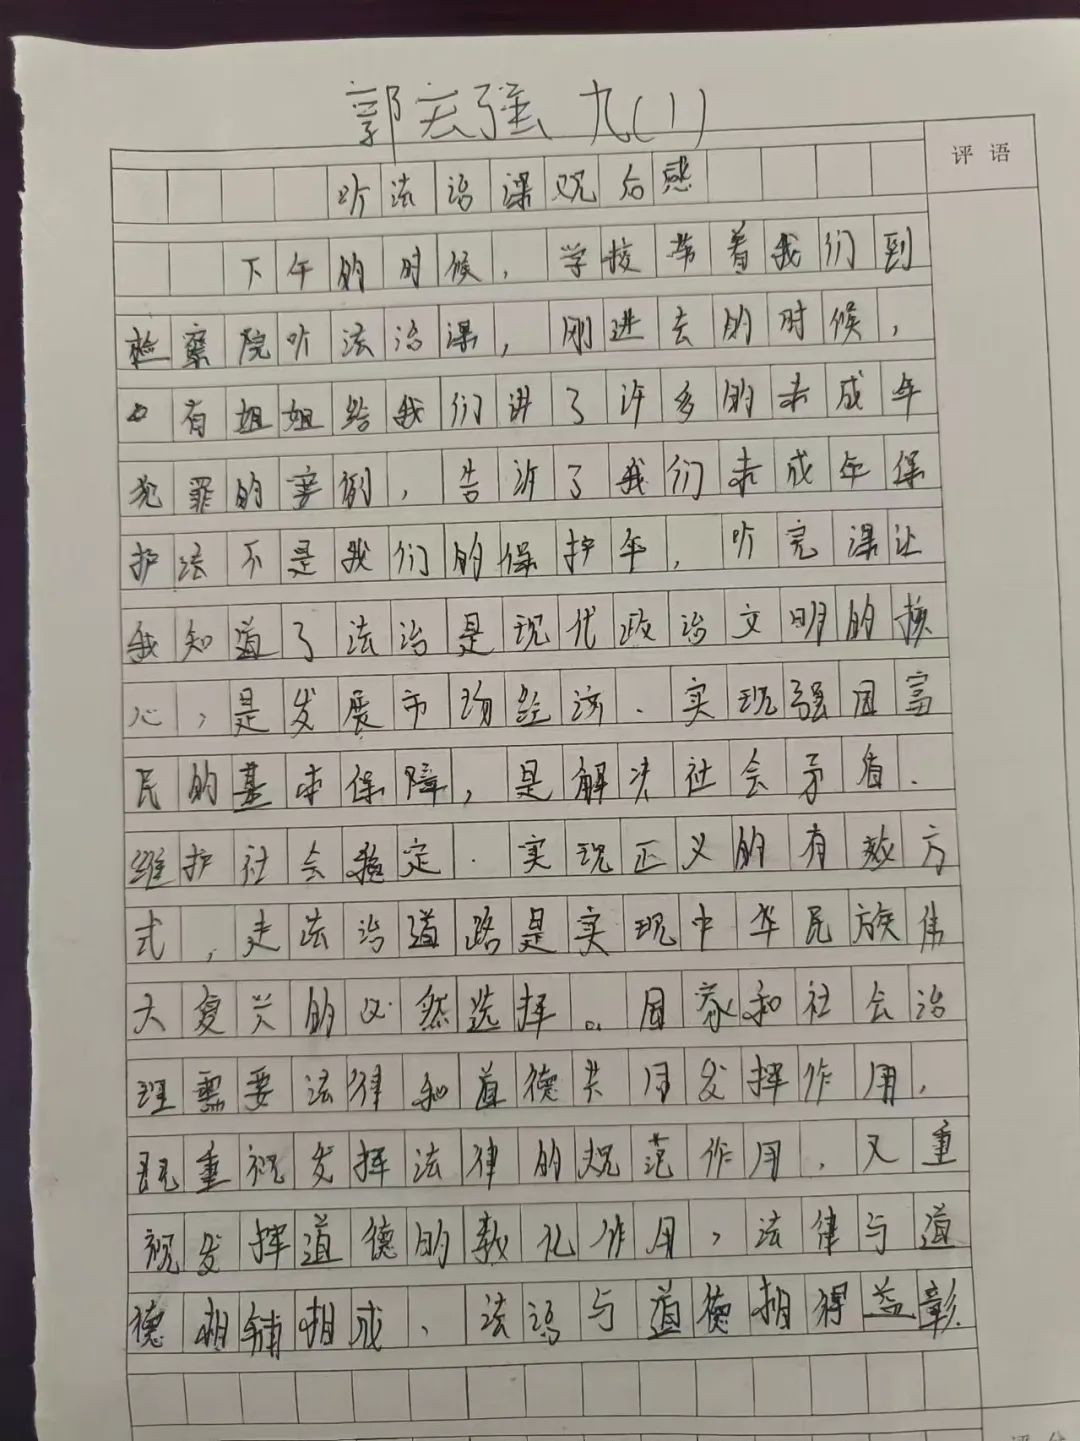 郭宏强 九(1)
评语
听法治课观后感
下午的时候，学校带着我们到
检察院听法治课，刚进去的时候，
有姐姐给我们讲了许多的未成年
犯罪的案例，告诉了我们未成年保
护法不是我们的保护伞，听完课让
我知道了法治是现代政治文明的核
心，是发展市场经济、实现强国富
民的基本保障，是解决社会矛盾、
维护社会稳定、实现正义的有效方
式，走法治道路是实现中华民族伟
大复兴的必然选择。国家和社会治
理需要法律和道德共同发挥作用，
既重视发挥法律的规范作用，又重
视发挥道德的教化作用，法律与道
德相辅相成、法治与道德相得益彰